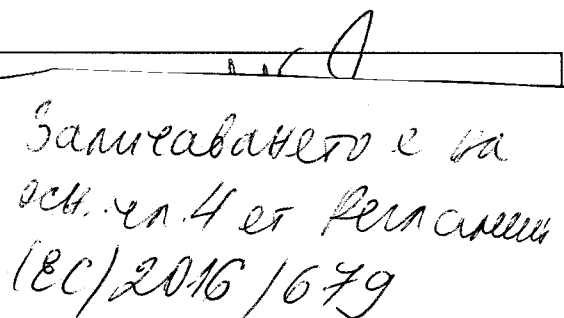 Заличаването е на
осн. чл. 4 от Регламент
(ЕС) 2016/679